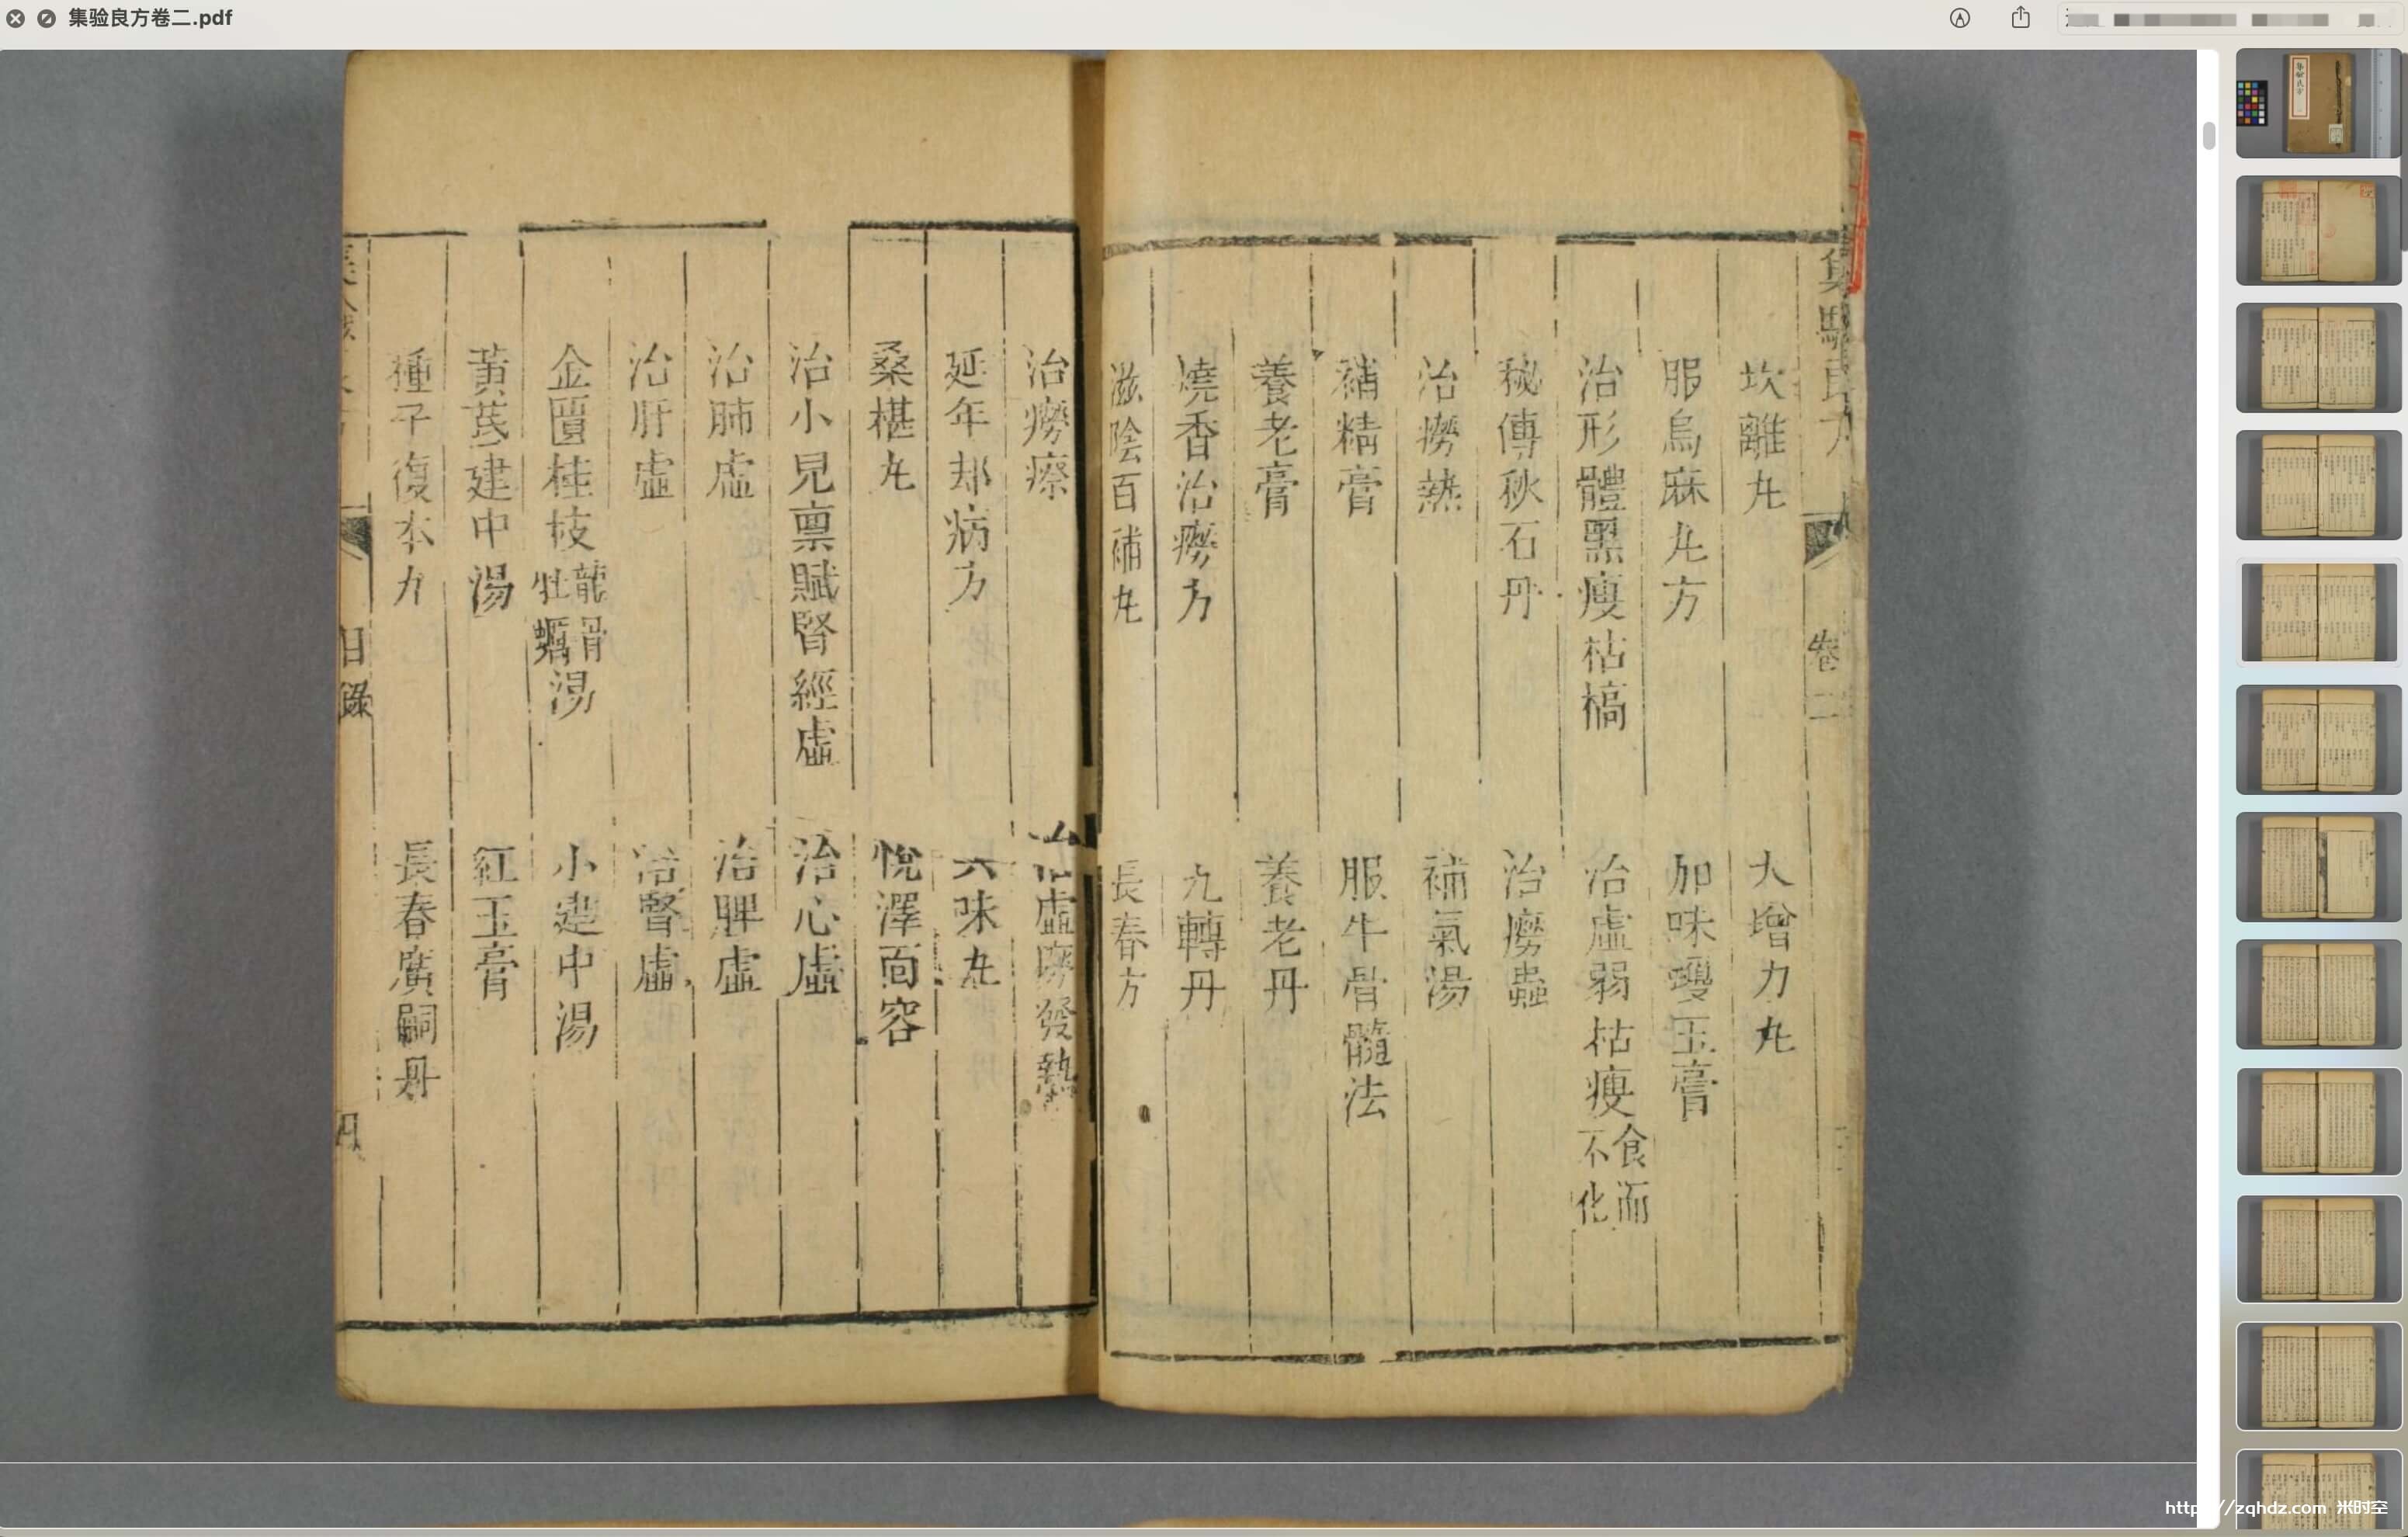 集验良方卷二.pdf
集驗良方
卷二
坎離丸
大增力丸
服烏麻丸方
加味瓊玉膏
治形體黑瘦枯槁
治虛弱枯瘦食而不化
秘傳秋石丹
治癆蟲
治癆熱
補氣湯
補精膏
服牛骨髓法
養老膏
養老丹
燒香治癆方
九轉丹
滋陰百補丸
長春方
治癆瘵
治虛癆發熱
延年却病方
六味丸
桑椹丸
悅澤面容
治小兒禀賦腎經虛
治心虛
治肺虛
治脾虛
治肝虛
治腎虛
金匱桂枝龍骨牡蠣湯
小建中湯
黃芪建中湯
紅玉膏
種子復本丸
長春廣嗣丹
目錄
http://zqhdz.com 米时空